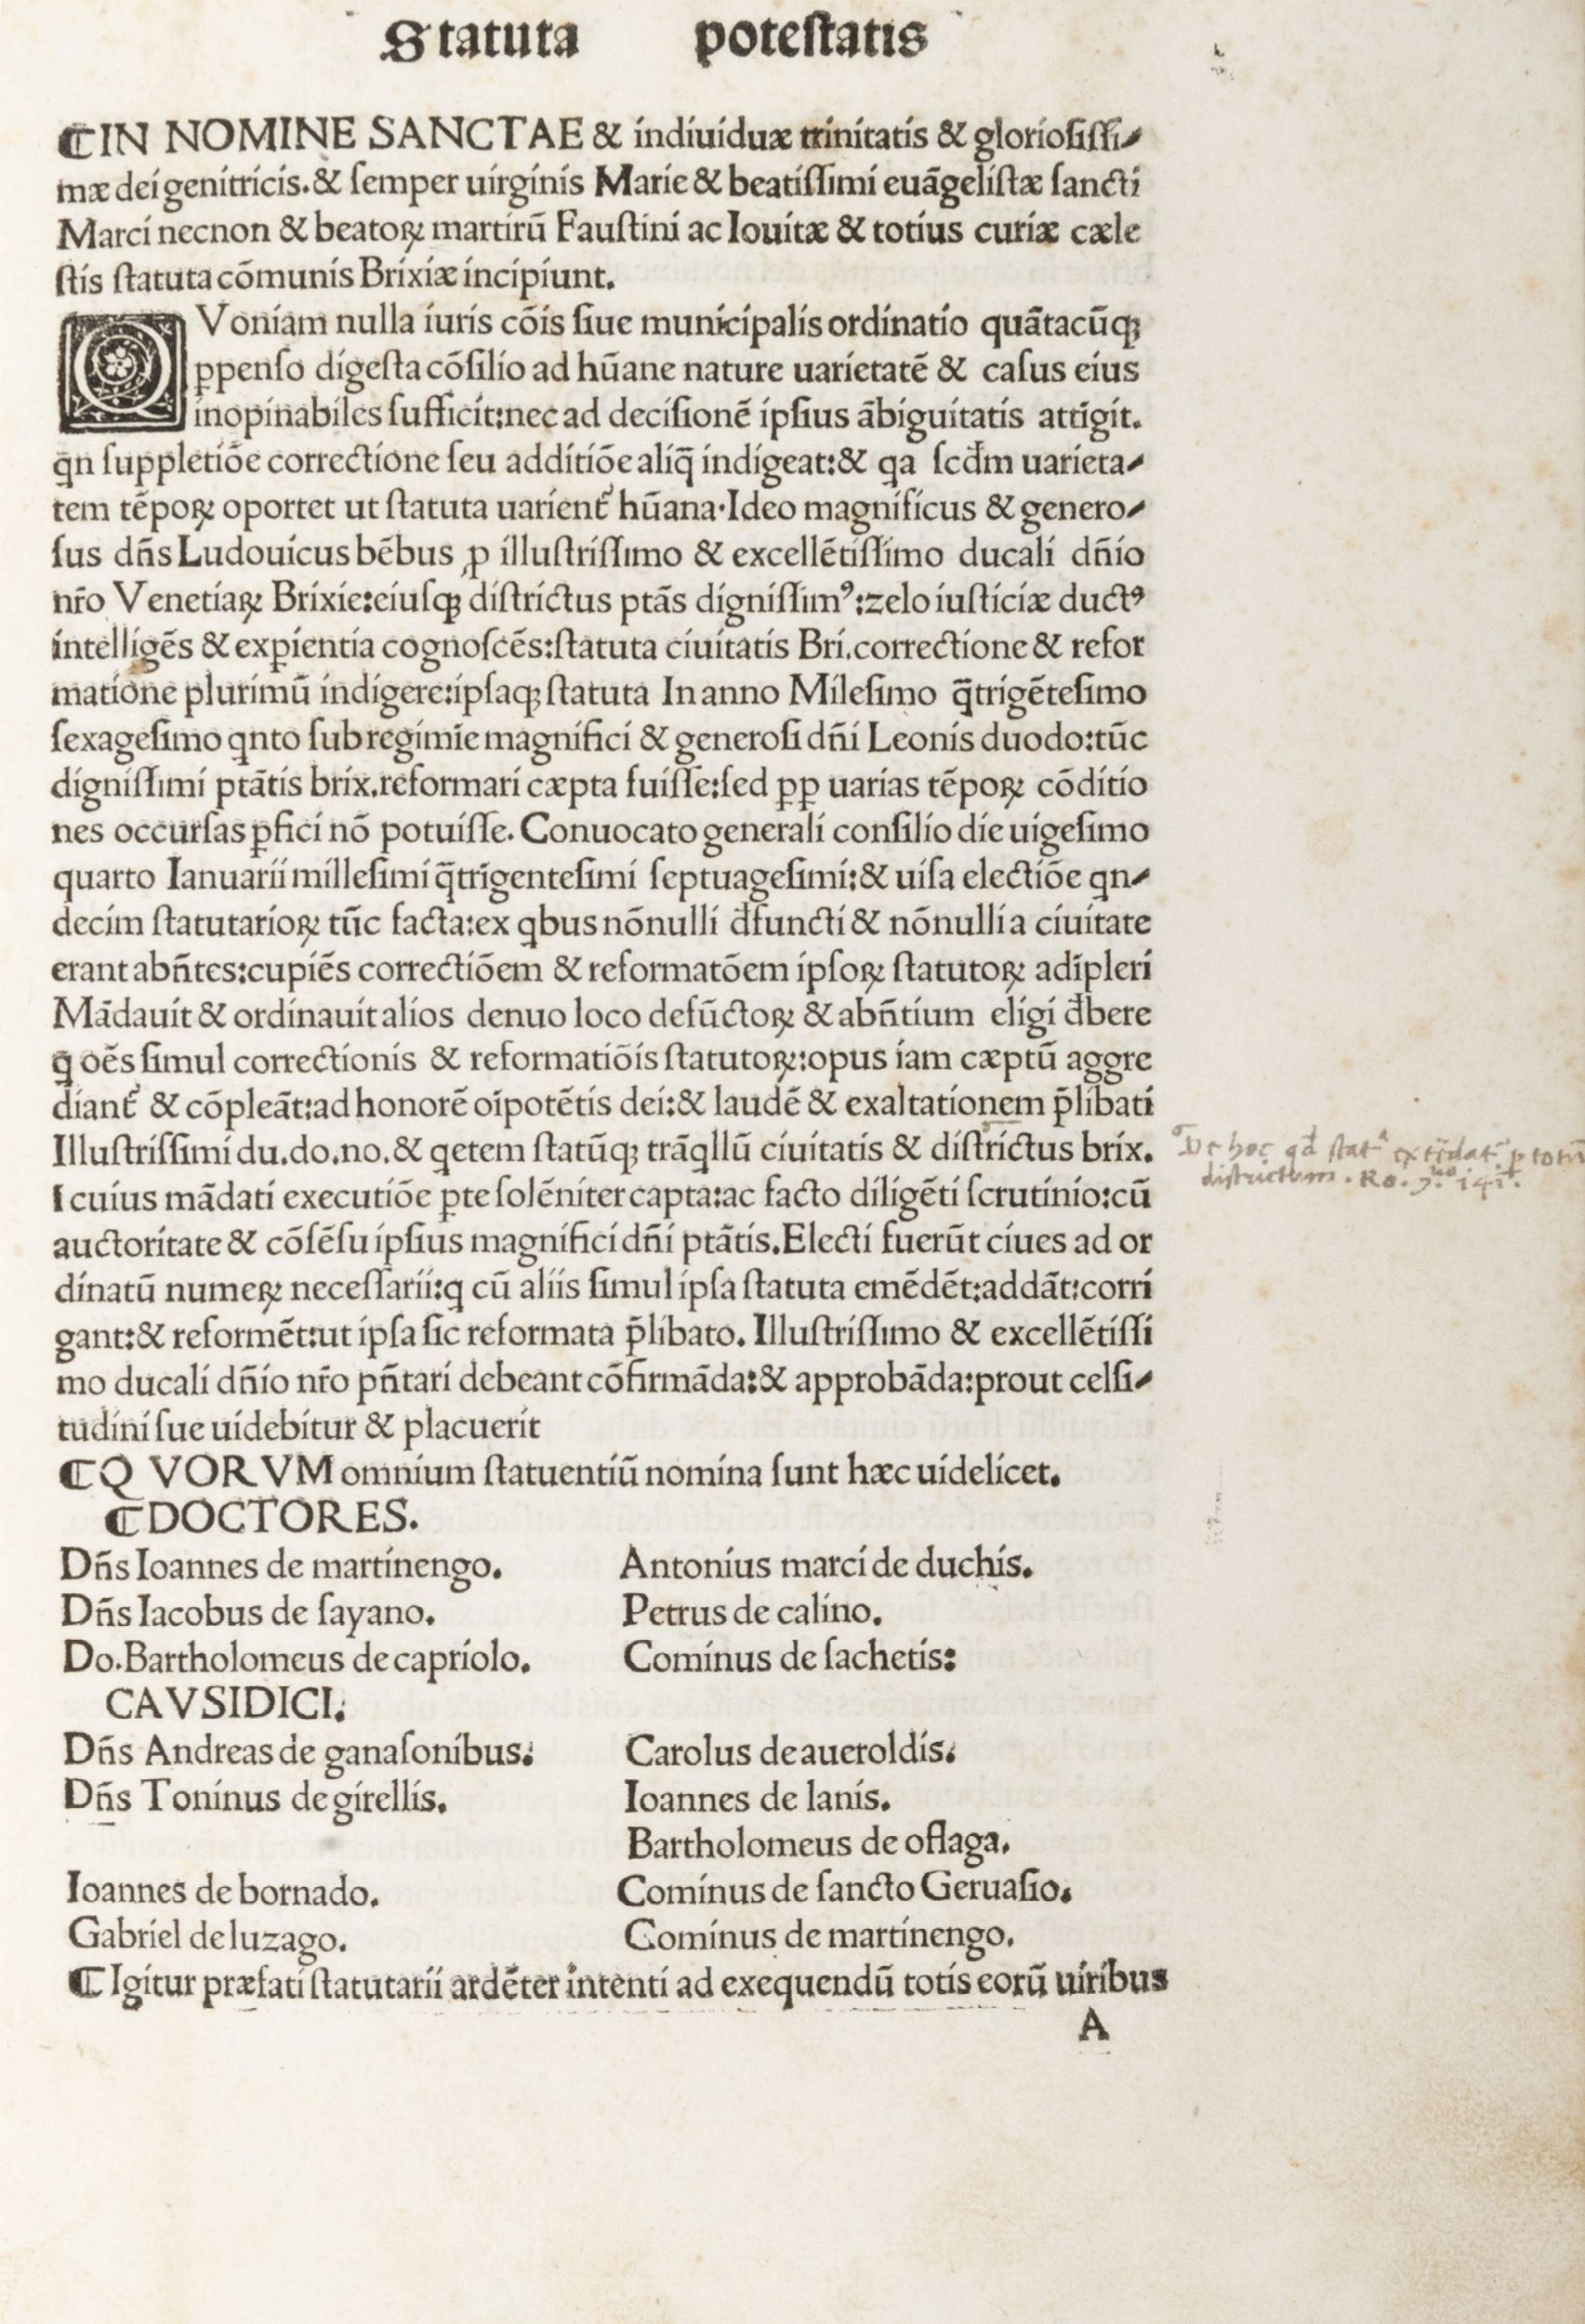 Statuta potestatis
¶IN NOMINE SANCTAE & indiuiduæ trinitatis & gloriosissi-
mæ dei genitricis.& semper uirginis Marie & beatissimi euāgelistæ sancti
Marci necnon & beatoꝝ martirū Faustini ac Iouitæ & totius curiæ cæle
stis statuta cōmunis Brixiæ incipiunt.
QVoniam nulla iuris cōis siue municipalis ordinatio quātacūqꝫ
ꝑpenso digesta cōsilio ad hūane nature uarietatē & casus eius
inopinabiles sufficit:nec ad decisionē ipsius ābiguitatis attīgit.
qn̄ suppletiōe correctione seu additiōe aliq̄ indigeat:& qa scd̄m uarieta-
tem tēpoꝝ oportet ut statuta uarient᷑ hūana·Ideo magnificus & genero-
sus dn̄s Ludouicus bēbus ꝓ illustrissimo & excellētissimo ducali dn̄io
nr̄o Venetiaꝝ Brixie:eiusqꝫ districtus ptās dignissimꝰ:zelo iusticiæ ductꝰ
intelligēs & exꝑientia cognoscēs:statuta ciuitatis Bri.correctione & refor
matione plurimū indigere:ipsaqꝫ statuta In anno Milesimo q̄trigētesimo
sexagesimo qnto sub regimīe magnifici & generosi dn̄i Leonis duodo:tūc
dignissimi ptātis brix.reformari cæpta fuisse:sed ꝑꝑ uarias tēpoꝝ cōditio
nes occursas ꝑfici nō potuisse. Conuocato generali consilio die uigesimo
quarto Ianuarii millesimi q̄trīgentesimi septuagesimi:& uisa electiōe qn-
decim statutarioꝝ tūc facta:ex qbus nōnulli d̄functi & nōnulli a ciuitate
erant abn̄tes:cupiēs correctiōem & reformatōem ipsoꝝ statutoꝝ adīpleri
Mādauit & ordinauit alios denuo loco defūctoꝝ & abn̄tium eligi d̄bere
q̄ oēs simul correctionis & reformatiōis statutoꝝ:opus iam cæptū aggre
diant᷑ & cōpleāt:ad honorē oīpotētis dei:& laudē & exaltationem p̄libati
Illustrissimi du.do.no.& qetem statūqꝫ trāqllū ciuitatis & districtus brix.
I cuius mādati executiōe ꝑte solēniter capta:ac facto diligēti scrutinio:cū
auctoritate & cōsēsu ipsius magnifici dn̄i ptātis.Electi fuerūt ciues ad or
dinatū numeꝝ necessarii:q cū aliis simul ipsa statuta emēdēt:addāt:corri
gant:& reformēt:ut ipsa sic reformata p̄libato. Illustrissimo & excellētissi
mo ducali dn̄io nr̄o pn̄tari debeant cōfirmāda:& approbāda:prout celsi-
tudini sue uidebitur & placuerit
¶QVORVM omnium statuentiū nomina sunt hæc uidelicet.
¶DOCTORES.
Dn̄s Ioannes de martinengo. Antonius marci de duchis.
Dn̄s Iacobus de sayano. Petrus de calino.
Do.Bartholomeus de capriolo. Cominus de sachetis:
CAVSIDICI.
Dn̄s Andreas de ganasonibus. Carolus de aueroldis.
Dn̄s Toninus de girellis. Ioannes de lanis.
Bartholomeus de oflaga.
Ioannes de bornado. Cominus de sancto Geruasio.
Gabriel de luzago. Cominus de martinengo.
¶Igitur præfati statutarii ardēter intenti ad exequendū totis eorū uiribus
A
De hoc qd̄ stat
districtum. Ro.